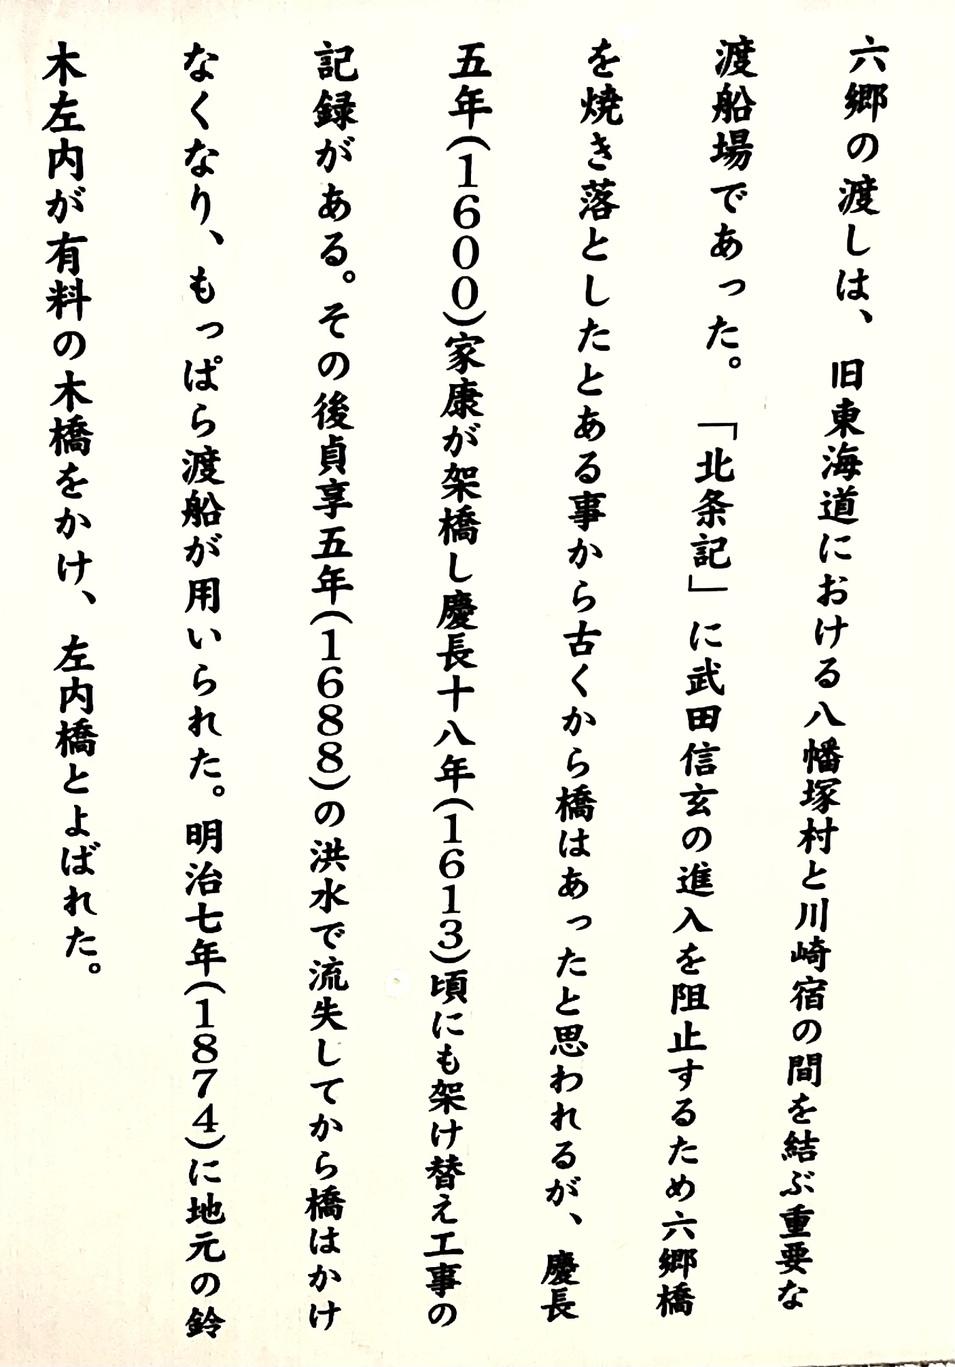 六郷の渡しは、旧東海道における八幡塚村と川崎宿の間を結ぶ重要な
渡船場であった。「北条記」に武田信玄の進入を阻止するため六郷橋
を焼き落としたとある事から古くから橋はあったと思われるが、慶長
五年(1600)家康が架橋し慶長十八年(1613)頃にも架け替え工事の
記録がある。その後貞享五年(1688)の洪水で流失してから橋はかけ
なくなり、もっぱら渡船が用いられた。明治七年(1874)に地元の鈴
木左内が有料の木橋をかけ、左内橋とよばれた。